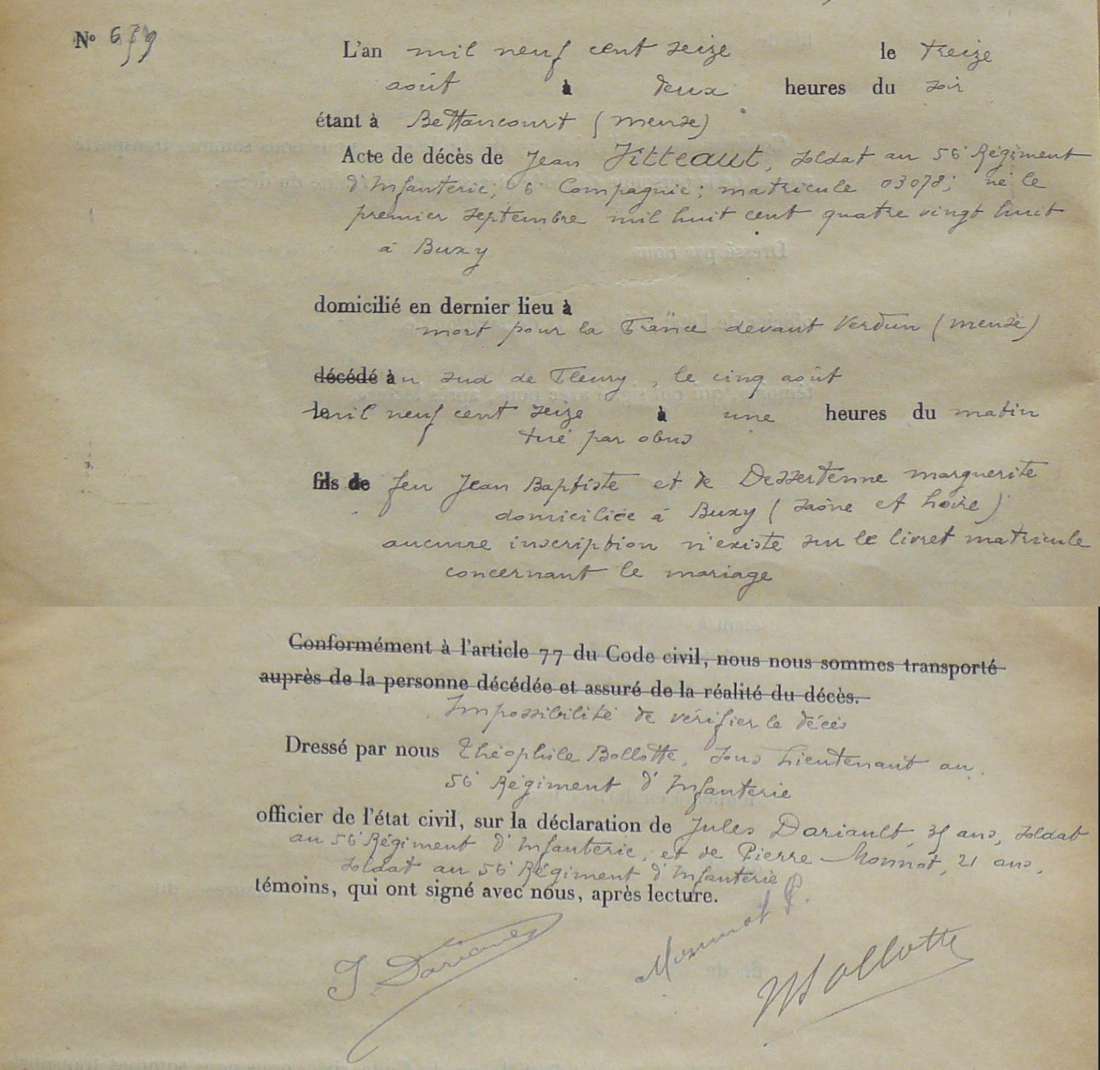 N° 679
L'an mil neuf cent seize le treize
août à deux heures du soir
étant à Bettancourt (meuse)
Acte de décès de Jean Titteaut, soldat au 56e Régiment
d'Infanterie; 6 Compagnie; matricule 03078; né le
premier septembre mil huit cent quatre vingt huit
à Buxy
domicilié en dernier lieu à
mort pour la France devant Verdun (meuse)
décédé au sud de Fleury, le cinq août
le mil neuf cent seize à une heures du matin
tué par obus
fils de feu Jean Baptiste et de Dessertenne marguerite
domiciliée à Buxy (Saône et Loire)
aucune inscription n'existe sur le livret matricule
concernant le mariage
Conformément à l'article 77 du Code civil, nous nous sommes transporté
auprès de la personne décédée et assuré de la réalité du décès.
Impossibilité de vérifier le décès
Dressé par nous Théophile Bollotte, Sous Lieutenant au
56e Régiment d'Infanterie
officier de l'état civil, sur la déclaration de Jules Dariault, 35 ans, soldat
au 56e Régiment d'Infanterie, et de Pierre Monnot, 21 ans,
soldat au 56e Régiment d'Infanterie
témoins, qui ont signé avec nous, après lecture.
J. Dariault Monnot P. Bollotte